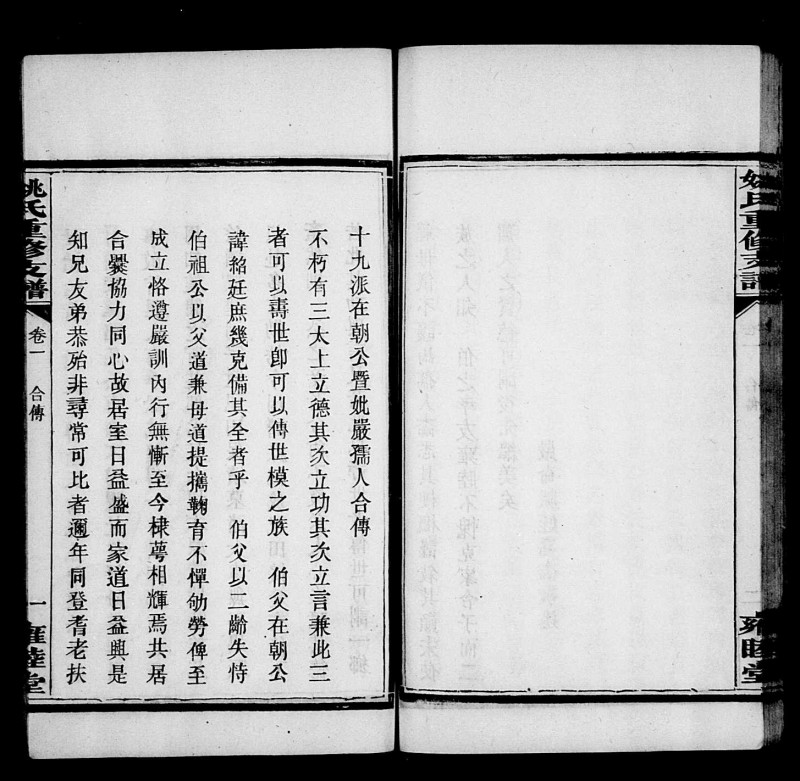 姚氏重修支譜
雍睦堂
十九派在朝公暨妣嚴孺人合傳
不朽有三太上立德其次立功其次立言兼此三
者可以壽世卽可以傳世模之族 伯父在朝公
諱紹廷庶幾克備其全者乎 伯父以二齡失恃
伯祖公以父道兼母道提攜鞠育不憚劬勞俾至
成立恪遵嚴訓內行無慚至今棣萼相輝焉共居
合爨協力同心故居室日益盛而家道日益興是
知兄友弟恭殆非尋常可比者邇年同登耆老扶
姚氏重修支譜
卷一
合傳
一
雍睦堂